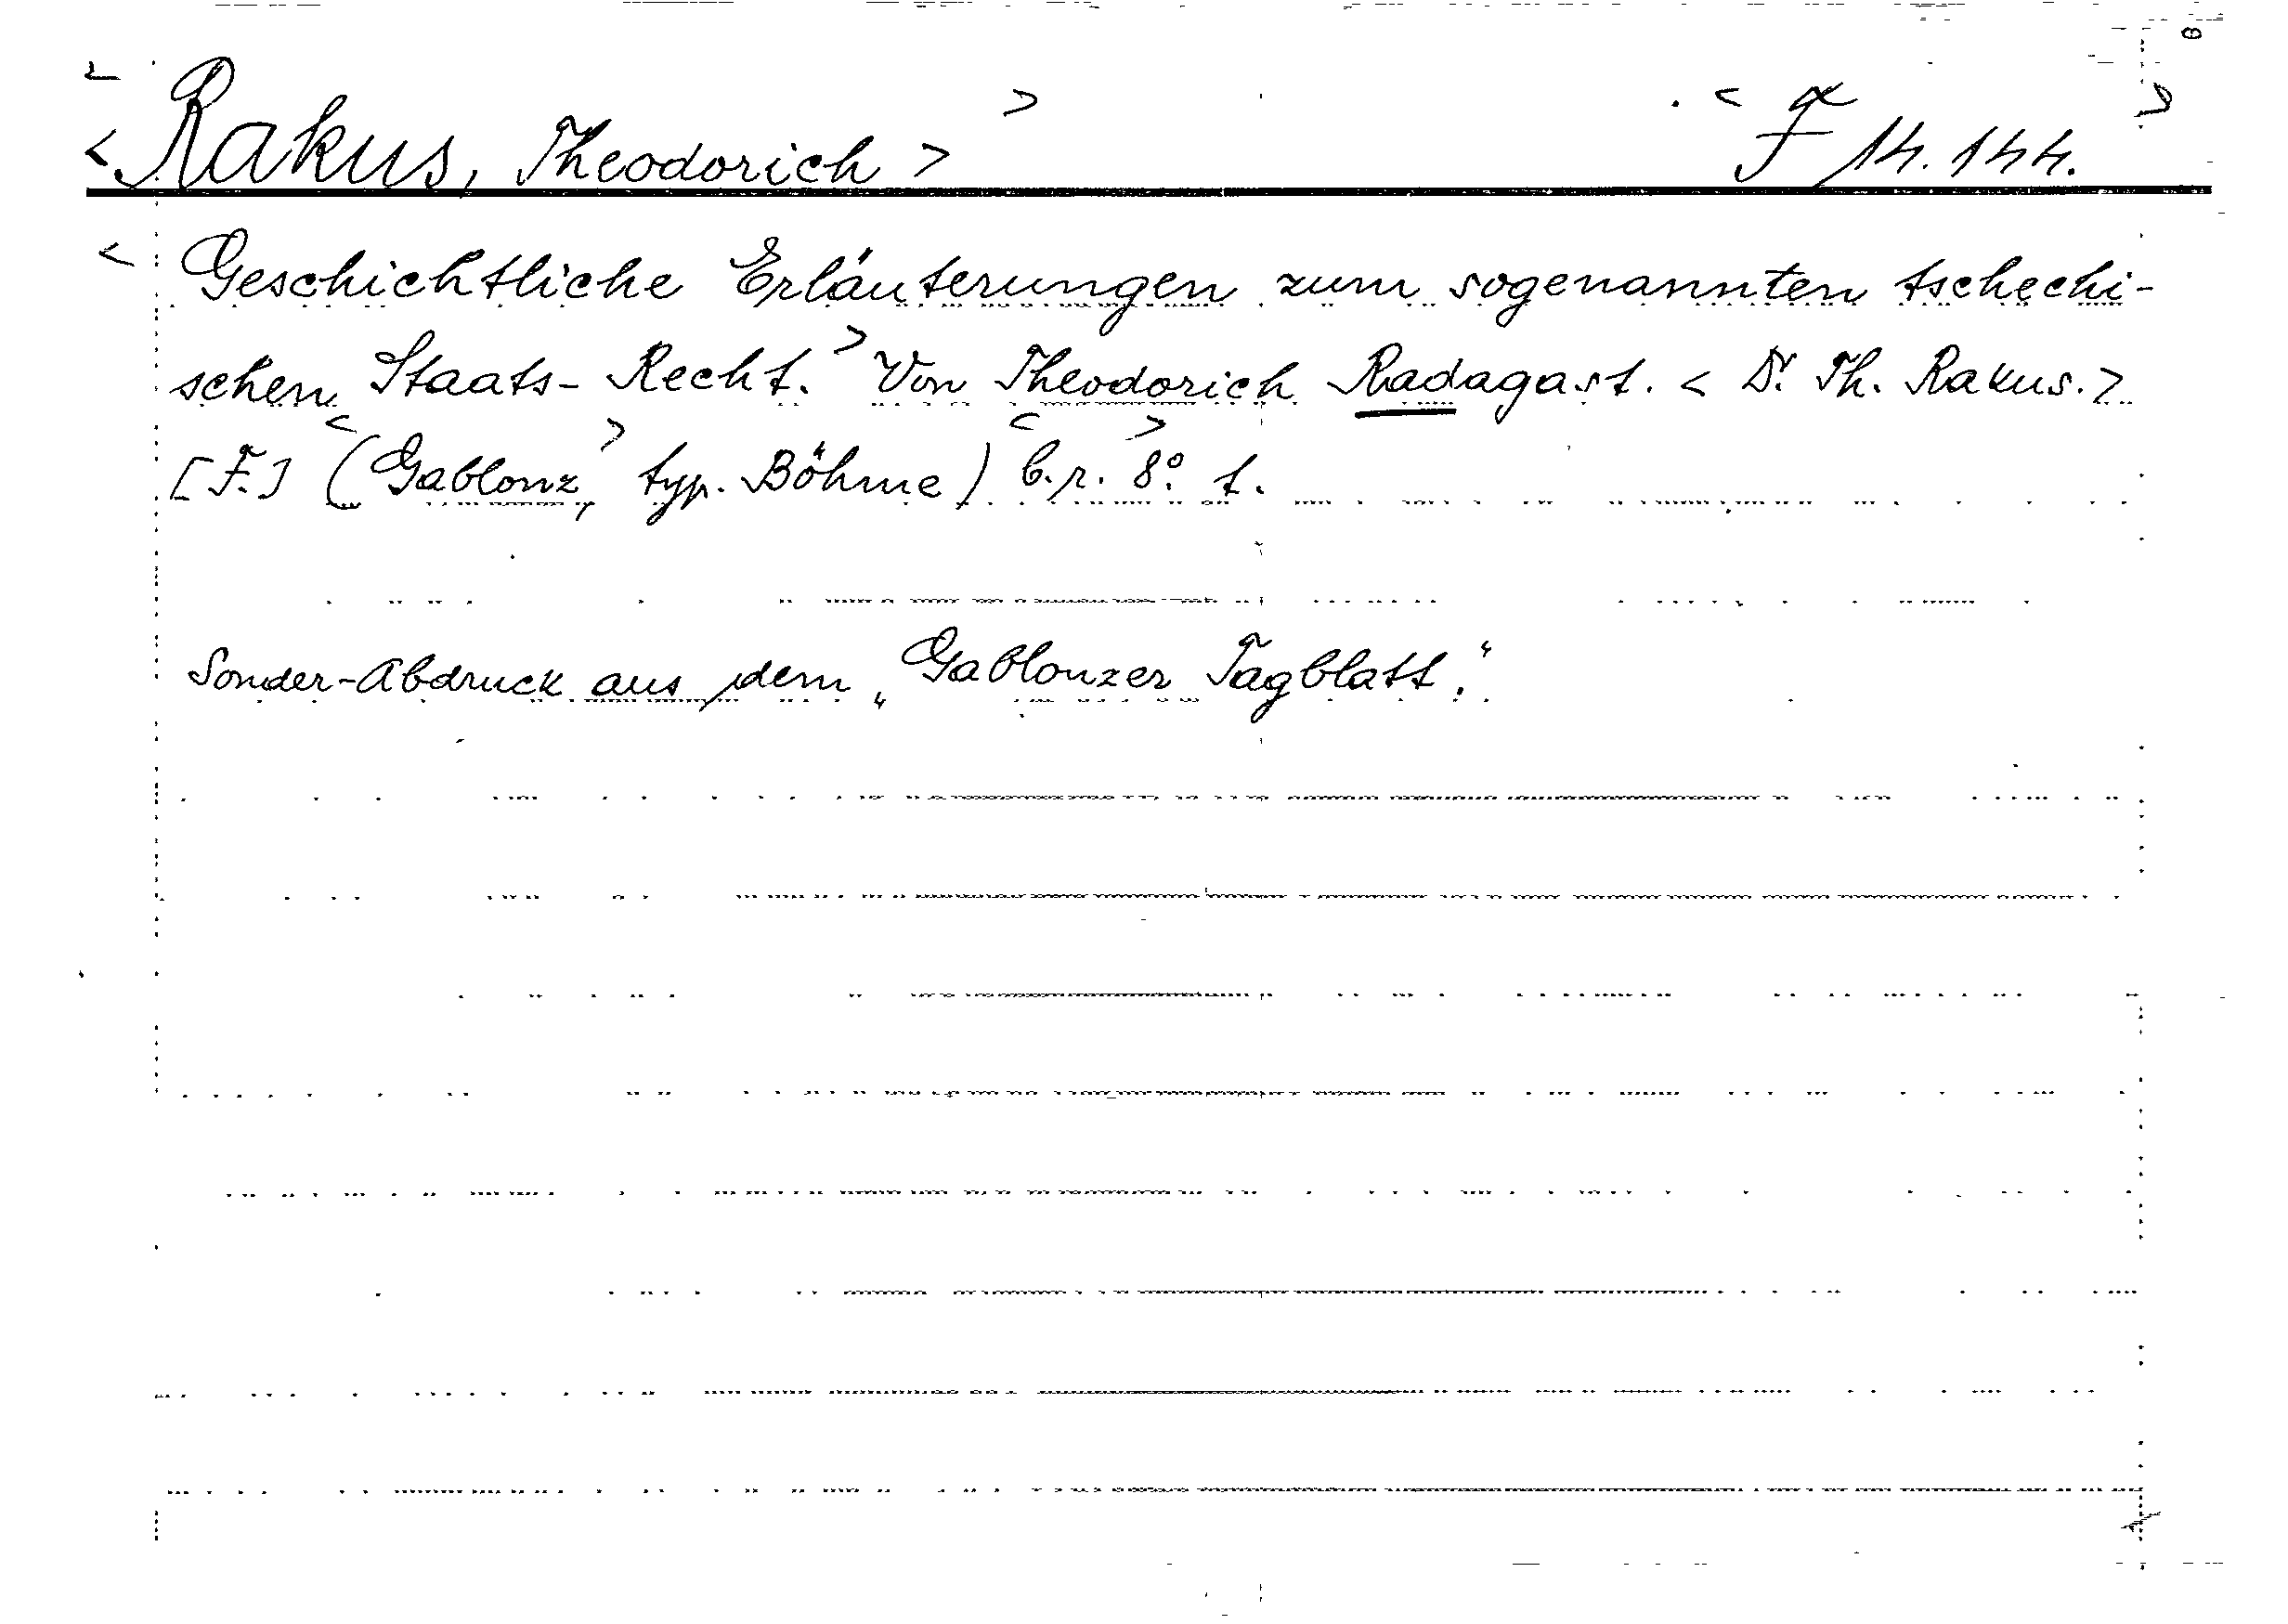 <Rakus, Theodorich> F 14.144.
Geschichtliche Erläuterungen zum sogenannten tschechi-
schen Staats-Recht. Von Theodorich Radagast. <Dr. Th. Rakus.>
[F.] (Gablonz, typ. Böhme) 8°.
Sonder-Abdruck aus dem „Gablonzer Tagblatt."